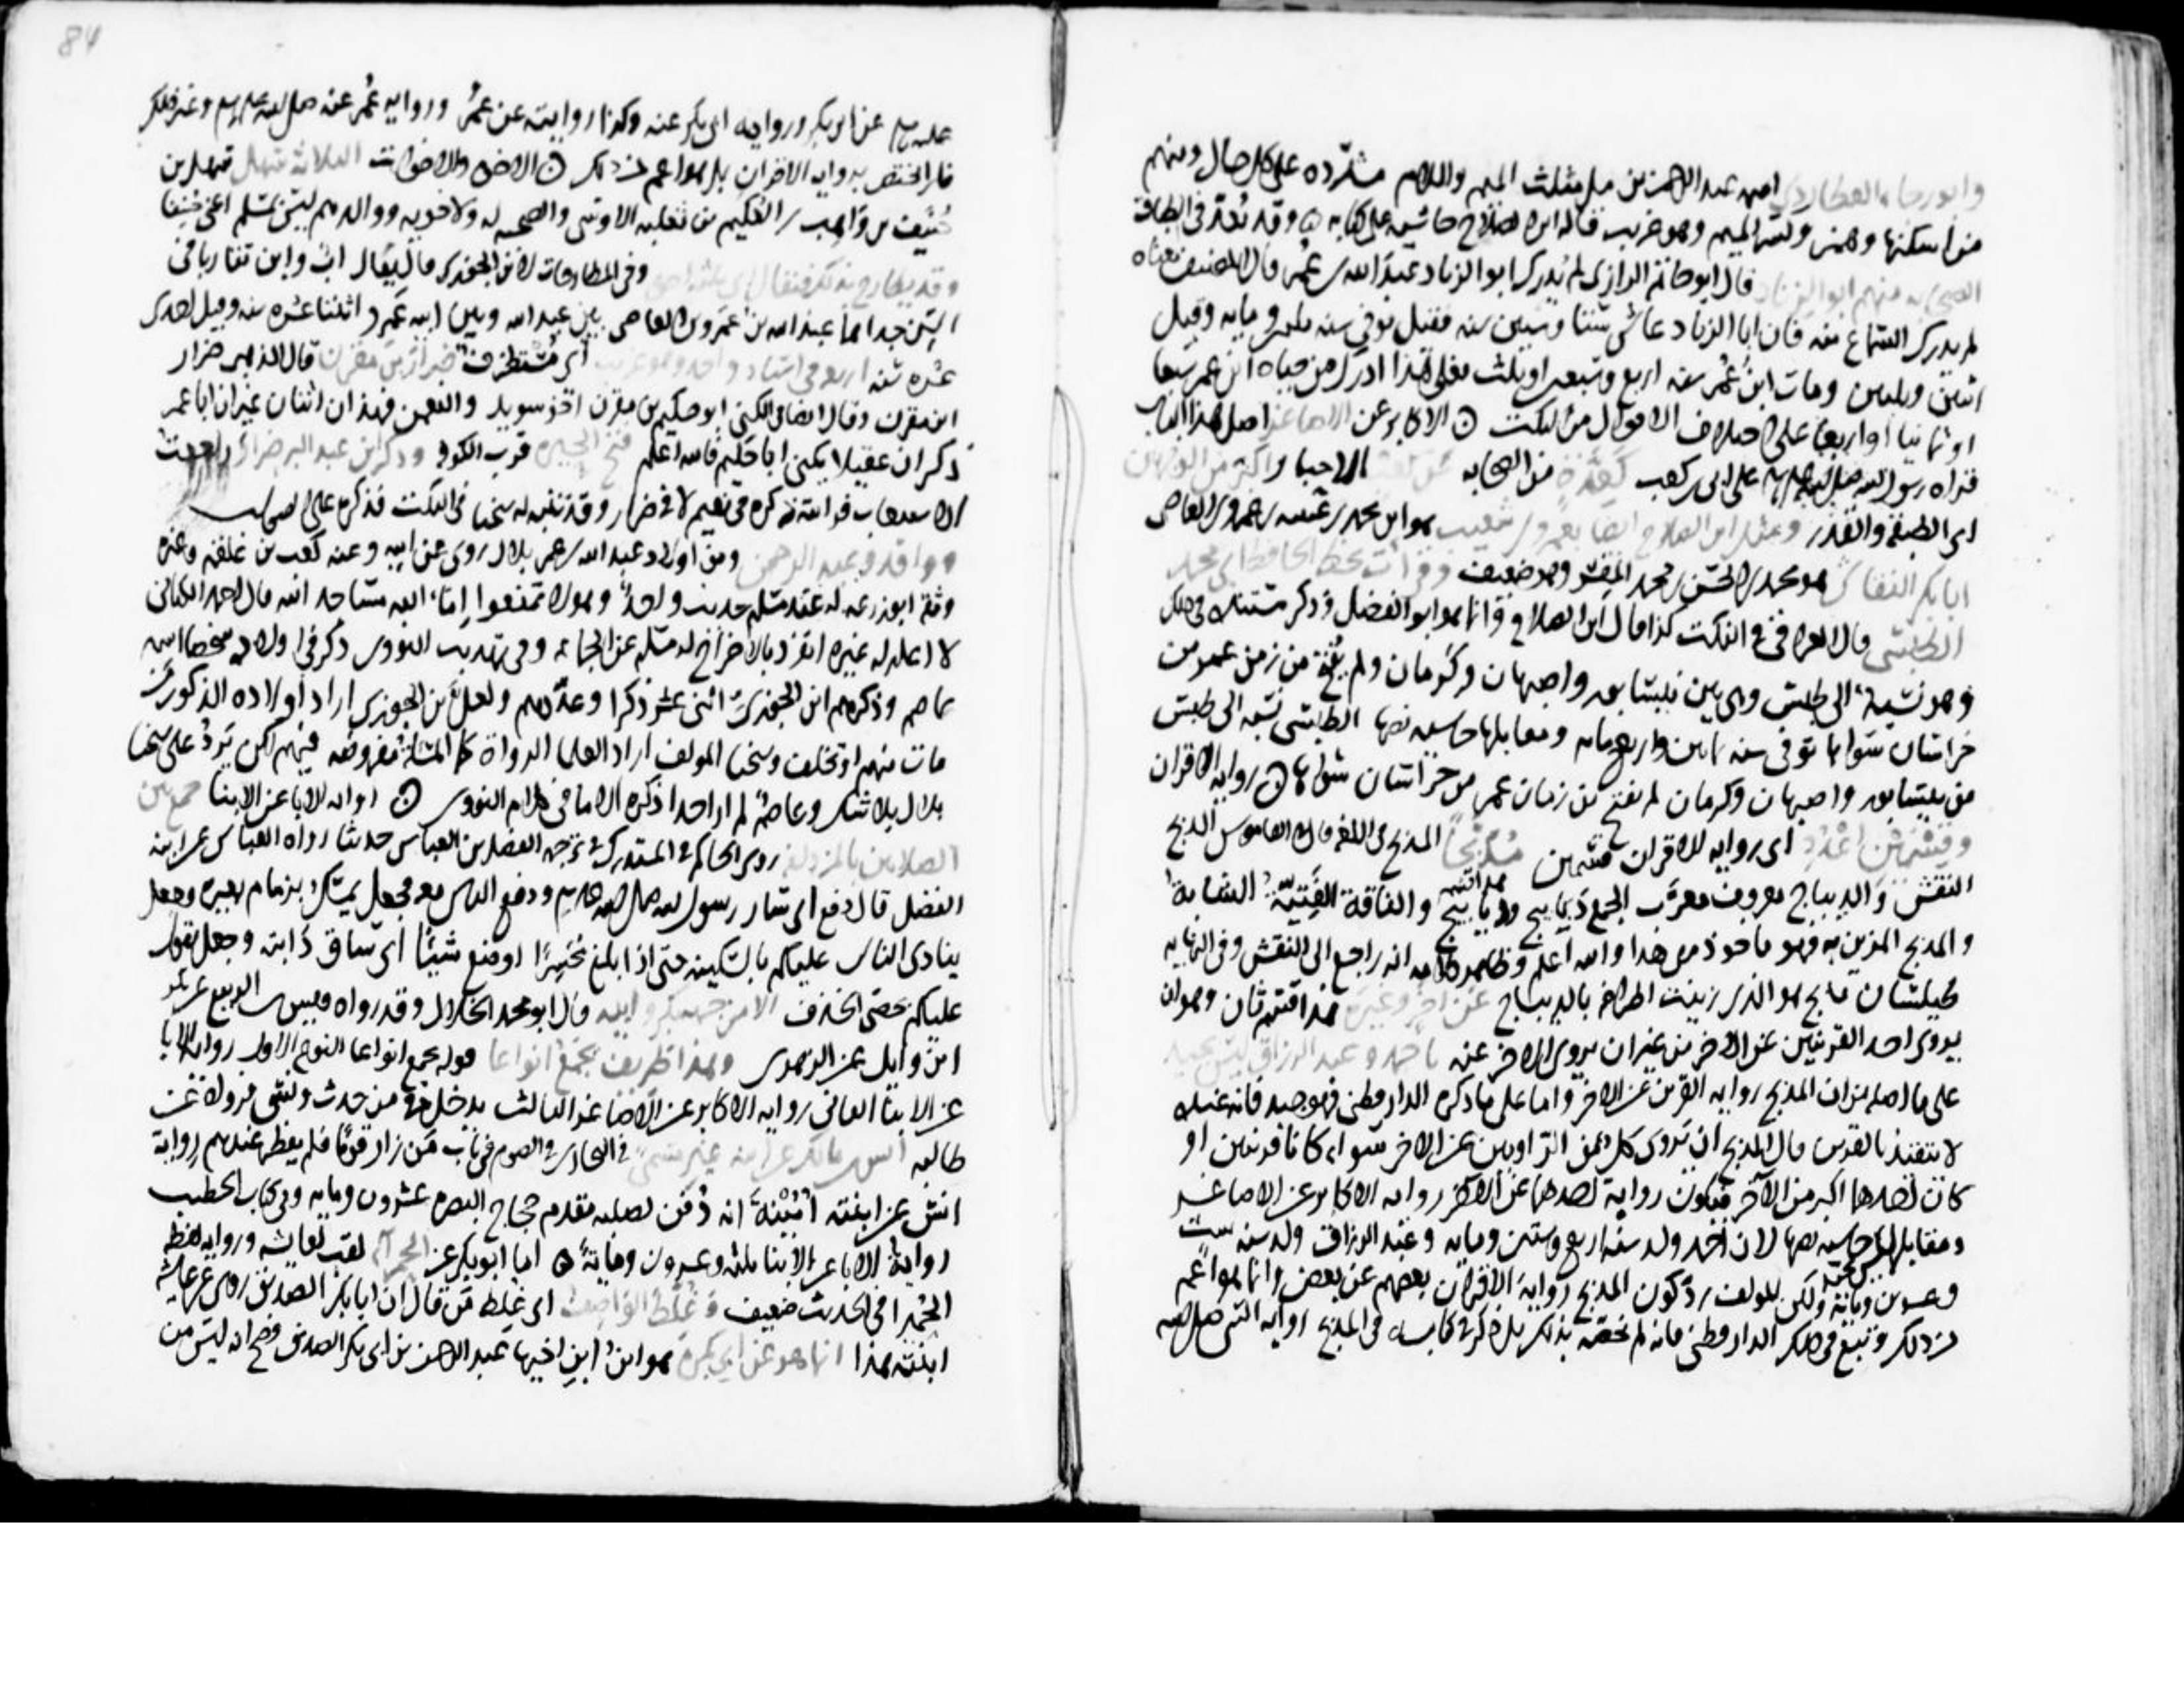 وابو رجاء العطاردي اسمه عبد الرحمن بن مل مثلث الميم واللام مشددة على كل حال ومنهم
من اسكنها وهمز وكسر الميم وهو غريب قاله ابن الصلاح حاشية على كتابه وقد تعد في الطباق
الصحابه منهم ابو الزناد قال ابو حاتم الرازي لم يدرك ابو الزناد عبد الله بن عمر قال المصنف معناه
لم يدرك السماع منه فان ابا الزناد عاش ستا وستين سنه فقيل توفي سنه ثلثين ومايه وقيل
اثنين وثلثين ومات ابن عمر سنه اربع وسبعين او ثلث فعلى هذا ادرك من حياه ابن عمر سبعا
او ثمانيا او اربعا على اختلاف الاقوال من النكت الاكابر عن الاصاغر اصل هذا الباب
قراه رسول الله صلى الله عليه وسلم على ابي بن كعب كعدة من الصحابه الاحبار
اي الطبقة والقدر ومثل ابن الصلاح ايضا بعمرو بن شعيب هو ابن محمد بن عبد الله بن عمرو بن العاصي
ابا بكر النقاش هو محمد بن الحسن بن محمد المفسر وهو ضعيف وقرأت بخط الحافظ ابي محمد
الطبسي قال العراقي في النكت كذا قال ابن الصلاح وانما هو ابو الفضل وذكر مستنده في ذلك
وهو نسبة الى طبس وهي بين نيسابور واصبهان وكرمان ولم يفتح من زمن عمر من
خراسان سواها توفي سنه ثمانين واربع مايه ومقابلها حاشيه نصها الطبسي نسبه الى طبس
من نيسابور واصبهان وكرمان لم يفتح من زمان عمر من خراسان سواها روايه الاقران
وقسمين اعدد اي روايه الاقران قسمين مدبجا المدبج في اللغه قال في القاموس الدبج
النقش والديباج معروف معرب الجمع ديابيج ودبابيج والناقة الفتية الشابة
والمدبج المزين به فهو ماخوذ من هذا والله اعلم وظاهر كلامه انه راجع الى النقش وفي النهايه
طيلسان مدبج هو الذي زينت اطرافه بالديباج عن اخر وغيره هذا قسم ثان وهو ان
يروي احد القرينين عن الاخر من غير ان يروي الاخر عنه باحمد وعبد الرزاق ليس بجيد
على ما اصله من ان المدبج روايه القرين عن الاخر واما على ما ذكره الدارقطني فهو جيد فانه عنده
لا يتقيد بالقرين قال المدبج ان يروي كل من الراويين عن الاخر سواء كانا قرينين او
كان احدهما اكبر من الاخر فتكون رواية احدهما عن الاخر روايه الاكابر عن الاصاغر
ومقابلها حاشيه نصها لان احمد ولد سنة اربع وستين ومايه وعبد الرزاق ولد سنه ست
وعشرين ومايه ولكن للمؤلف رد كون المدبج رواية الاقران بعضهم عن بعض وانما هو اعم
من ذلك وتبع في ذلك الدارقطني فانه لم يخصه بذلك بل ذكر في كتابه في المدبج روايه النبي صلى الله
عليه وسلم عن ابي بكر وروايه ابي بكر عنه وكذا روايته عن عمر وروايه عمر عنه صلى الله عليه وسلم وغير ذلك
فلم يختص بروايه الاقران بل هو اعم من ذلك الاخوه والاخوات الثلاثه سهل
حنيف بن واهب بن العكيم بن ثعلبه الاوسي والصحبه له ولاخويه ووالدهم ليس بمسلم اعني حنيفا
وفي المطارحات لابن الجوزي ما يقال اب وابن تقاربا في
السن جدا هما عبد الله بن عمرو بن العاصي بين عبد الله وبين ابيه عمرو اثنتا عشره سنه وقيل احدى
عشره سنه اربع في اسناد واحد وهو غريب اي مستظرف ضرار بن مقرن قال الذهبي ضرار
ابن مقرن وقال ايضا في الكنى ابو حكيم بن مقرن اخو سويد والنعمن فهذان اثنان غير ان ابا عمر
ذكر ان عقيلا يكنى ابا حكيم فالله اعلم فتح الحيره قرب الكوفه وذكر ابن عبد البر ضرارا راجعت
الاستيعاب فرايته ذكره في نعيم لا في ضرار وقد تنبه له شيخنا في النكت فذكره على الصواب
وواقد وعبد الرحمن ومن اولاد عبد الله بن عمر بلال روى عن ابيه وعنه كعب بن علقمه وغيره
وثقه ابو زرعه له عند مسلم حديث واحد وهو لا تمنعوا اماء الله مساجد الله قال احمد الكناني
لا اعلم له غيره انفرد بالاخراج له مسلم عن الجماعه وفي تهذيب النووي ذكر في اولاده شخصا اسمه
عاصم وذكرهم ابن الجوزي اثني عشر ذكرا وعدهم ولعل ابن الجوزي اراد اولاده الذكور من
مات منهم او تخلف وشيخنا المولف اراد العلما الرواة كما المسئلة مفروضه فيهم لكن يرد على شيخنا
بلال بلا شك وعاصم لم ار احدا ذكره الا ما في كلام النووي رواية الابا عن الابنا جمع بين
الصلاتين بالمزدلفه روى الحاكم في المستدرك في ترجمه الفضل بن العباس حديثا رواه العباس عن ابنه
الفضل قال دفع اي سار رسول الله صلى الله عليه وسلم ودفع الناس معه فجعل يمسك بزمام بعيره وجعل
ينادي الناس عليكم بالسكينه حتى اذا بلغ محسرا اوضع شيئا اي ساق دابته وجعل يقول
عليكم بحصى الخذف الا من جهه بكر وابيه قال ابو محمد الخلال وقد رواه قيس بن الربيع عن بكر
ابن وايل عن الزهري وهذا طريف يجمع انواعا قوله يجمع انواعا النوع الاول روايه الابا
عن الابنا الثاني روايه الاكابر عن الاصاغر الثالث يدخل فيه من حدث ونسي فرواه عن
طالبه انس بن مالك عن ابنه غير مسمى في البخاري في الصوم في باب من زار قوما فلم يفطر عندهم رواية
انس عن ابنته امينة انه دفن لصلبه مقدم حجاج البصره عشرون ومايه وفي كتاب الخطيب
رواية الابا عن الابنا ثلثه وعشرون ومايه اما ابو بكر عن الحمرا لقب لعائشه وروايه لفظه
الحمرا في الحديث ضعيف وغلط الواصف اي غلط من قال ان ابا بكر الصديق روى عن عايشه
ابنته هذا انما هو عن ابي بكر هو ابن ابن اخيها عبد الرحمن بن ابي بكر الصديق وصح انه ليس من
84